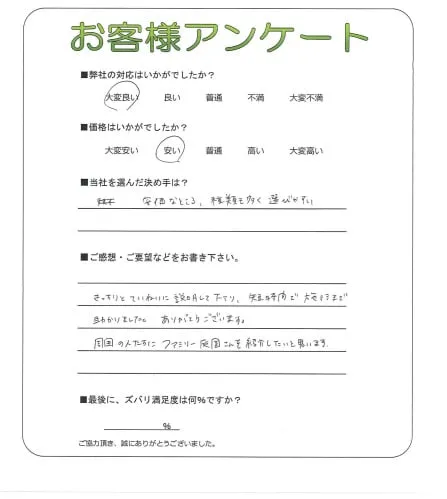 お客様アンケート
■弊社の対応はいかがでしたか?
大変良い 良い 普通 不満 大変不満
■価格はいかがでしたか?
大変安い 安い 普通 高い 大変高い
■当社を選んだ決め手は?
安価なところ、種類も多く 選びやすい
■ご感想・ご要望などをお書き下さい。
きっちりと ていねいに 説明して下さり、短時間で 施工まで
助かりました。 ありがとうございます。
周囲の人たちに ファミリー庭園さんを 紹介したいと思います。
■最後に、ズバリ満足度は何%ですか?
%
ご協力頂き、誠にありがとうございました。